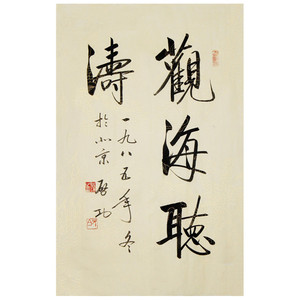 觀海聽
濤
一九八五年冬
於北京 啟功